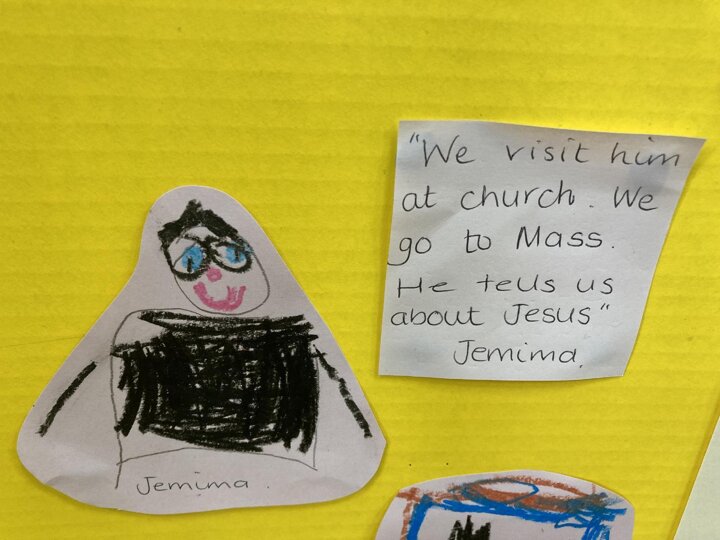 "We visit him
at church. We
go to Mass.
He tells us
about Jesus"
Jemima.
Jemima.